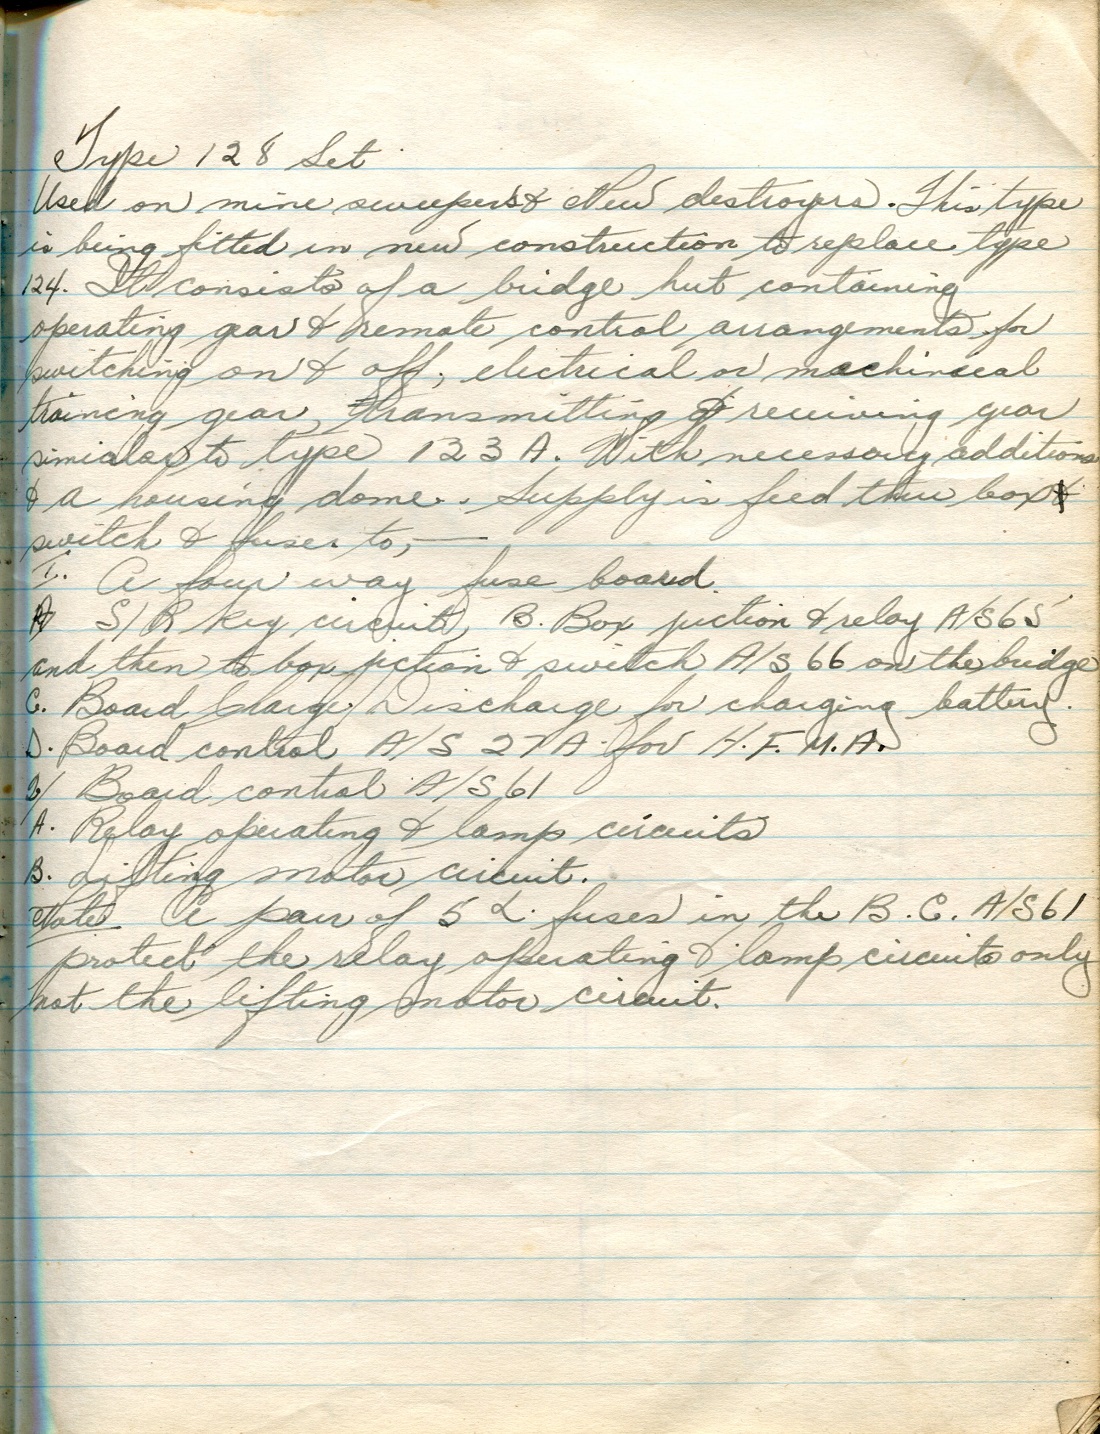 Type 128 Set
Used on mine sweepers & New destroyers. This type
is being fitted in new construction to replace type
124. It consists of a bridge hut containing
operating gear & remote control arrangements for
switching on & off, electrical or machinecal
training gear, transmitting & receiving gear
simialar to type 123 A. With necessary additions
& a housing dome. Supply is feed thru box &
switch & fuses to, —
1. A four way fuse board.
A S/R key circuit, B. Box jnction & relay A/S 65
and then to box jnction & switch A/S 66 on the bridge
C. Board Charge/Discharge for charging battery.
D. Board control A/S 27A for H.F.M.A.
2/ Board control A/S 61
A. Relay operating & lamp circuits
B. Lifting motor circuit.
Note A pair of 5 fuses in the B.C. A/S 61
protect the relay operating & lamp circuits only
not the lifting motor circuit.